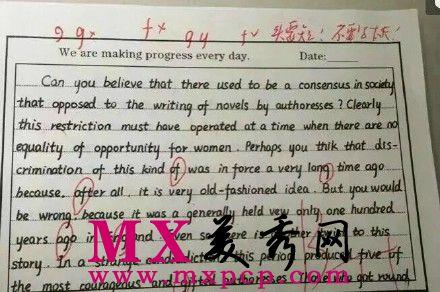 9 9x fx 9y fv
We are making progress every day. Date:
Can you believe that there used to be a consensus in society
that opposed to the writing of novels by authoresses? Clearly
this restriction must have operated at a time when there are no
equality of opportunity for women. Perhaps you thik that dis-
crimination of this kind of was in force a very long time ago
because, after all, it is very old-fashioned idea. But you would
be wrong, because it was a generally held vew only one hundred
years ago in and even so there is to this
story. In a strange this period produced five of
the most courageous and authoresses. They got round
MX美秀网
www.mxpcp.com